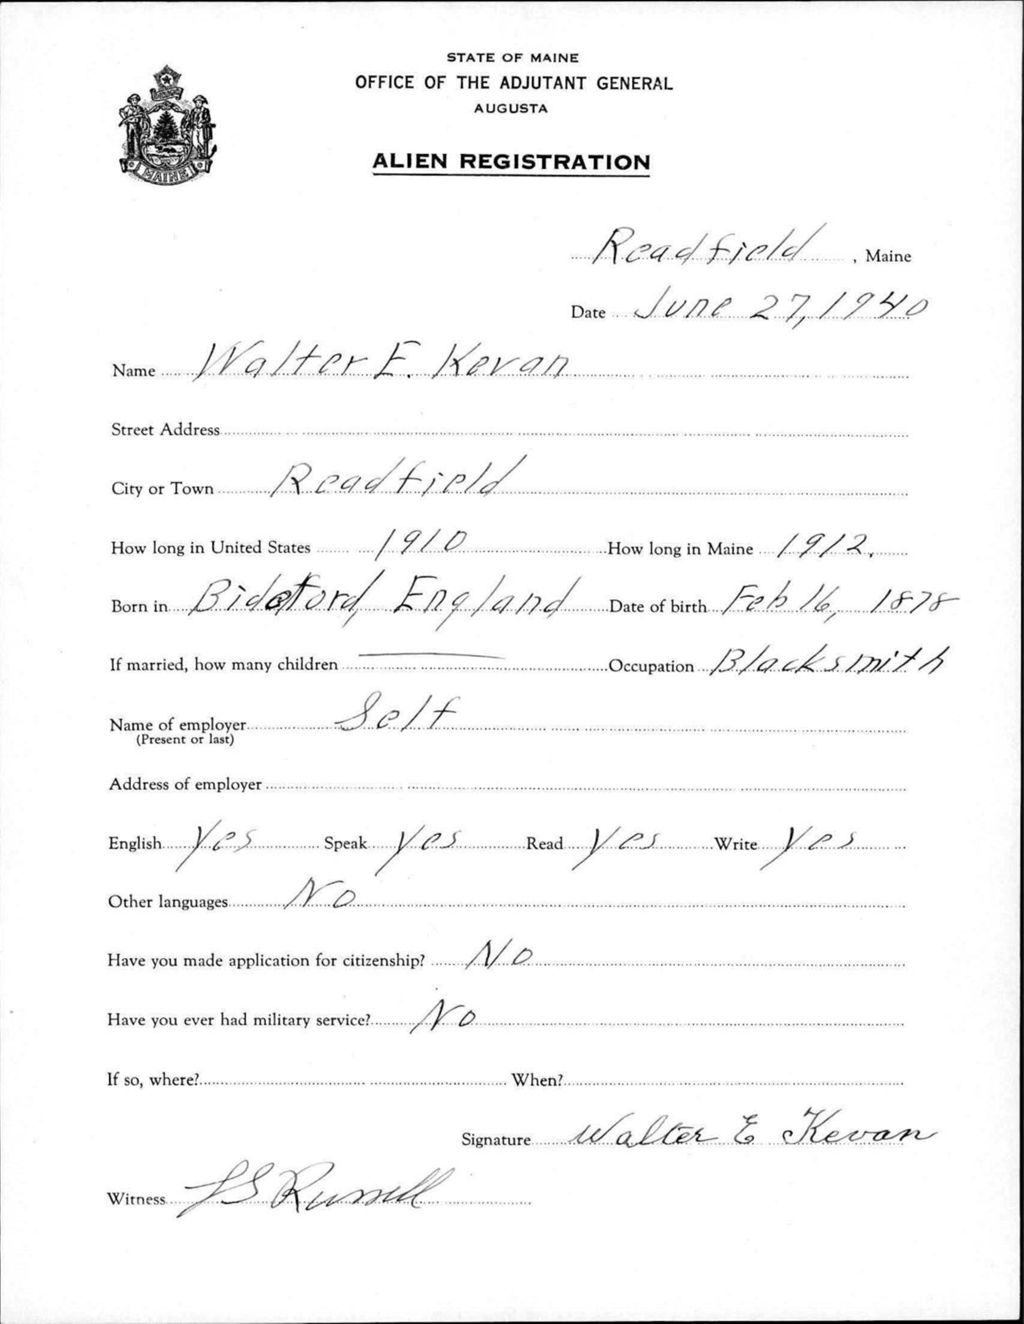 STATE OF MAINE
OFFICE OF THE ADJUTANT GENERAL
AUGUSTA
ALIEN REGISTRATION
MAINE
Readfield, Maine
Date June 27, 1940
Name Walter E. Kevan
Street Address
City or Town Readfield
How long in United States 1910 How long in Maine 1912.
Born in Bideford, England Date of birth Feb 16, 1878
If married, how many children Occupation Blacksmith
Name of employer Self
(Present or last)
Address of employer
English Yes Speak Yes Read Yes Write Yes
Other languages No
Have you made application for citizenship? No
Have you ever had military service? No
If so, where? When?
Signature Walter E Kevan
Witness Russell